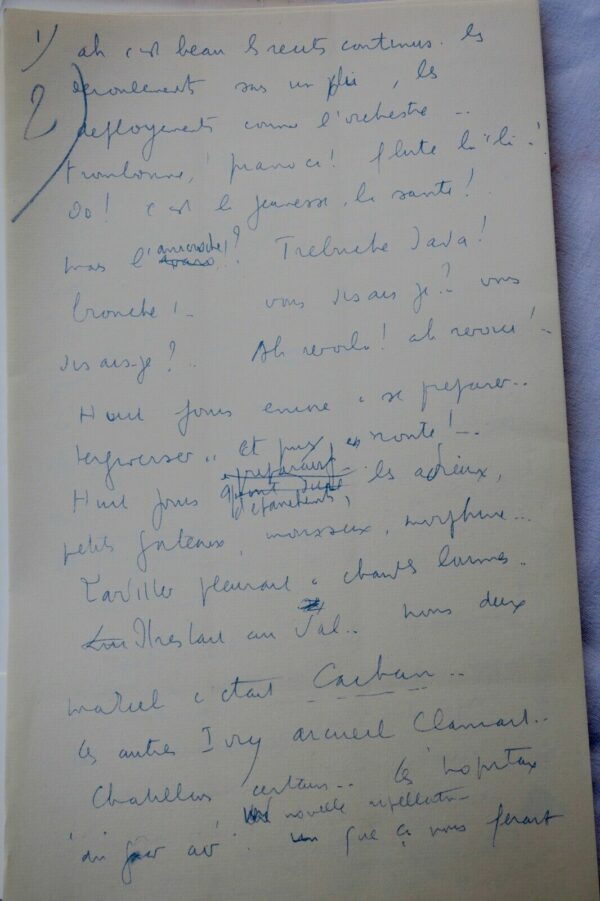 1) ah c'est beau les récits continus. les
2) déroulements sans un pli, les
déployements comme l'orchestre ..
trombonne, ! piano ci ! flute là ! li !
Do ! c'est la jeunesse, la santé !
mais l'anicroche ! ? Trebuche Java !
bronche ! .. vous disais je ? vous
disais-je ? .. Ah revoilà ! ah revoici ! ..
Huit jours encore à se préparer ..
tergiverser .. et puis, en route ! ..
Huit jours préparatifs les adieux,
d'épanchements,
petits gateaux, mousseux, morphine ...
pleurait à chaudes larmes.
Il restait au Val .. nous deux
c'était Cachan ..
les autres Ivry arcueil Clamart ..
Chatillon certains .. les hopitaux
nouvelle appellation
"du air". que ça nous ferait